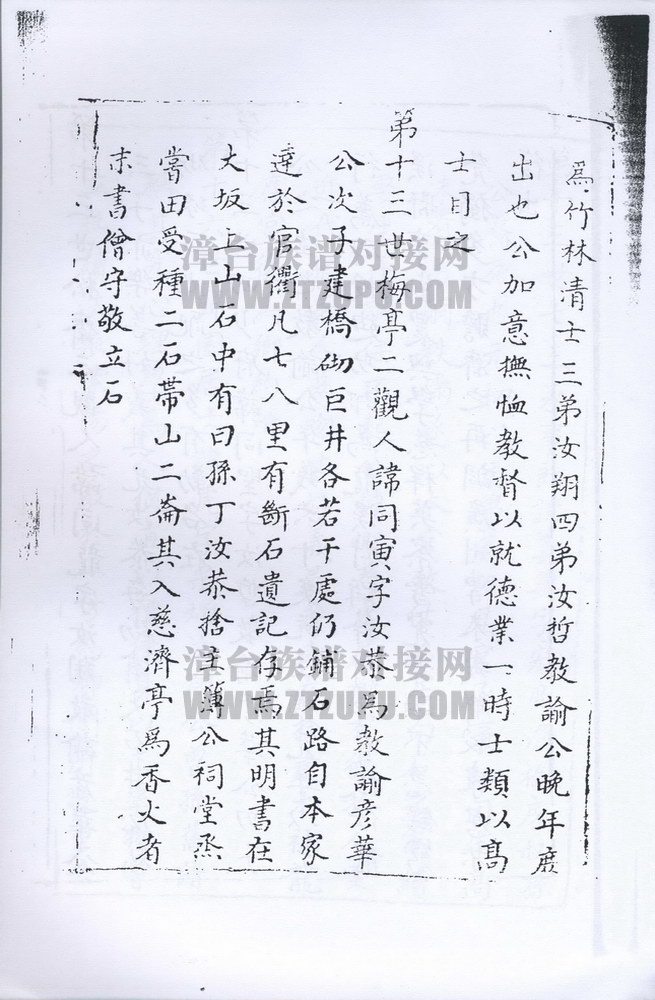 爲竹林清士三弟汝翔四弟汝哲教諭公晚年庻
出也公加意撫恤教督以就德業一時士類以高
士目之
第十三世梅亭二觀人諱同寅字汝恭爲教諭彦華
公次子建橋砌巨井各若干處仍鋪石路自本家
達於官衢凡七八里有斷石遺記存焉其明書在
大坂上山石中有曰孫丁汝恭捨主簿公祠堂烝
嘗田受種二石帶山二崙其入慈濟亭爲香火者
末書僧守敬立石
漳台族谱对接网
WWW.ZTZUPU.COM
漳台族谱对接网
WWW.ZTZUPU.COM